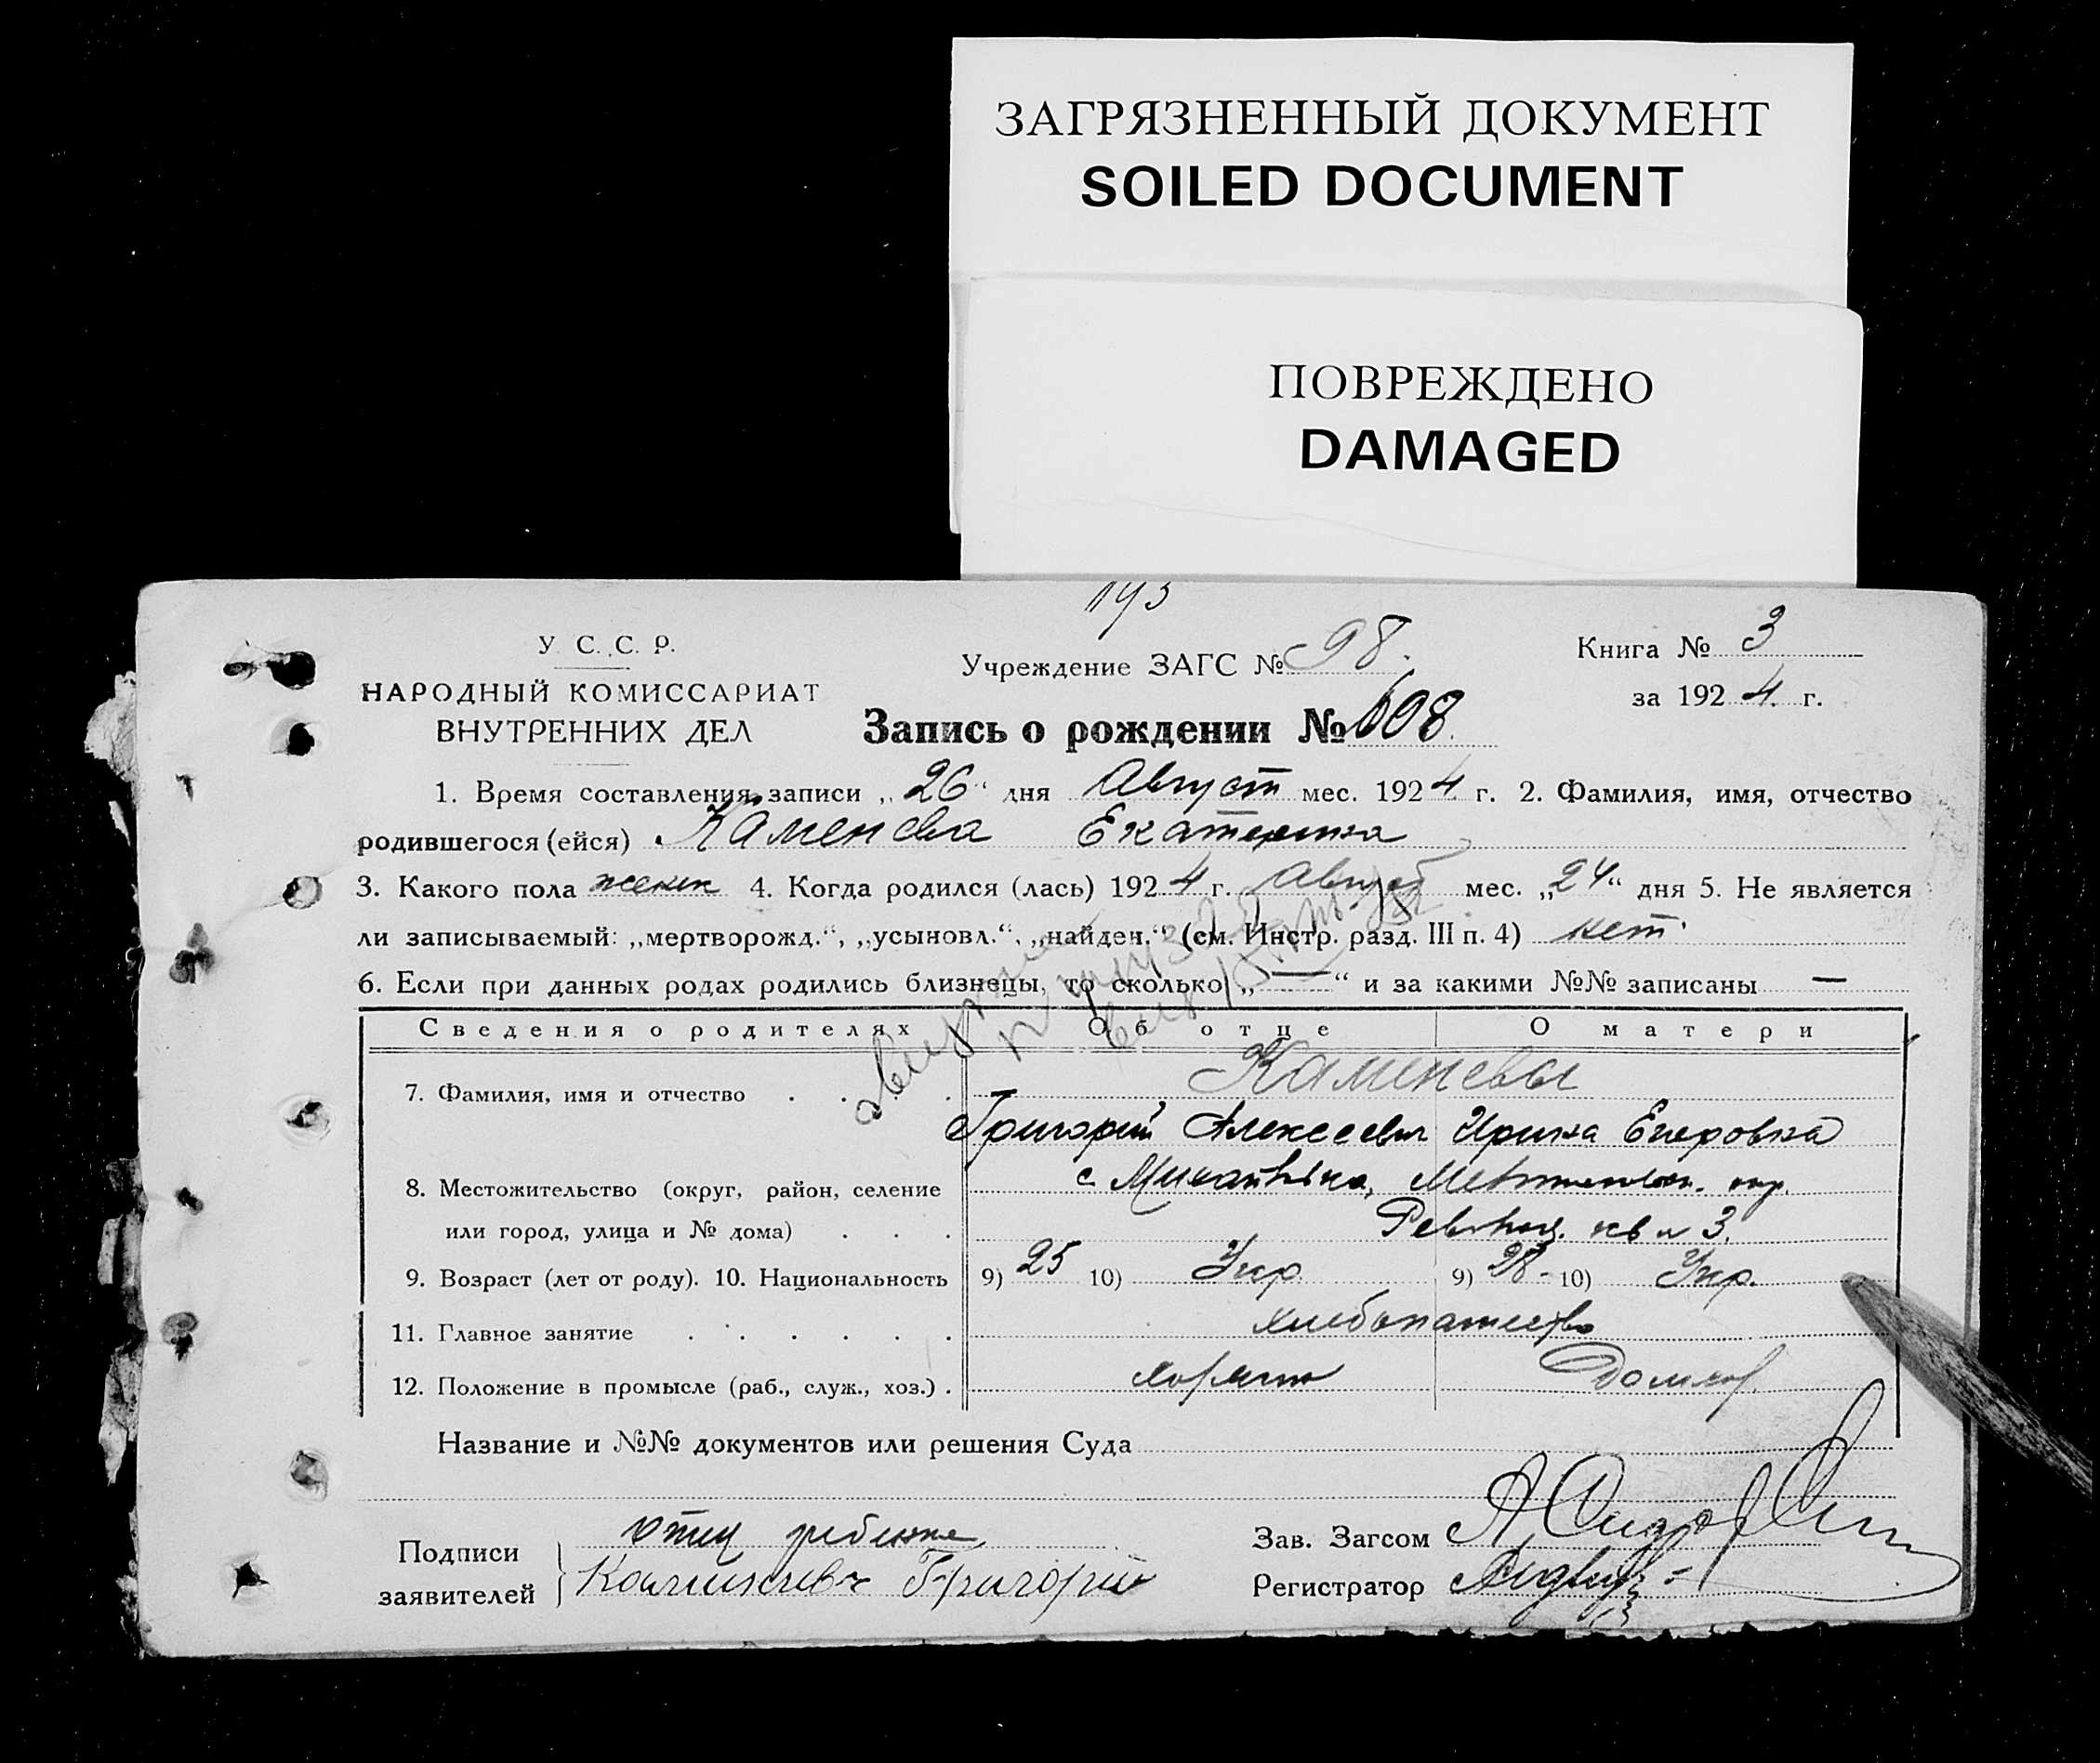 ЗАГРЯЗНЕННЫЙ ДОКУМЕНТ
SOILED DOCUMENT
ПОВРЕЖДЕНО
DAMAGED
193
У. С. С. Р.
НАРОДНЫЙ КОМИССАРИАТ
ВНУТРЕННИХ ДЕЛ
Учреждение ЗАГС № 98.
Книга № 3
за 1924 г.
Запись о рождении № 608.
1. Время составления записи „26“ дня Август мес. 1924 г. 2. Фамилия, имя, отчество
родившегося (ейся) Каменева Екатерина
3. Какого пола женск 4. Когда родился (лась) 1924 г. Август мес. „24“ дня 5. Не является
ли записываемый: „мертворожд.“, „усыновл.“, „найден.“ (см. Инстр. разд. III п. 4) нет.
6. Если при данных родах родились близнецы, то сколько „—“ и за какими №№ записаны —
Сведения о родителях Об отце О матери
7. Фамилия, имя и отчество . . . . Каменевы
Григорий Алексеевич Ирина Егоровна
8. Местожительство (округ, район, селение с
или город, улица и № дома) . . . 3.
9. Возраст (лет от роду). 10. Национальность 9) 25 10) Укр. 9) 28 10) Укр.
11. Главное занятие . . . . . хлебопашество
12. Положение в промысле (раб., служ., хоз.) . Домхоз.
Название и №№ документов или решения Суда
Подписи заявителей отец ребенка
Каменев Григорий
Зав. Загсом
Регистратор